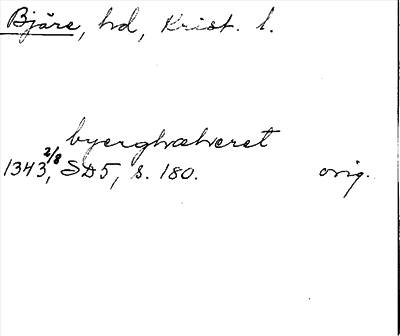 Bjäre, hd, Krist. l.
byerghæhæret
1343 2/8, SD5, s. 180. orig.